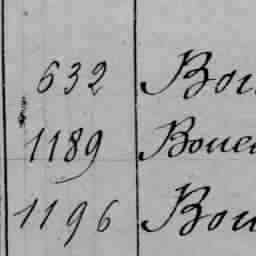 632 Bou
1189 Boue
1196 Bou